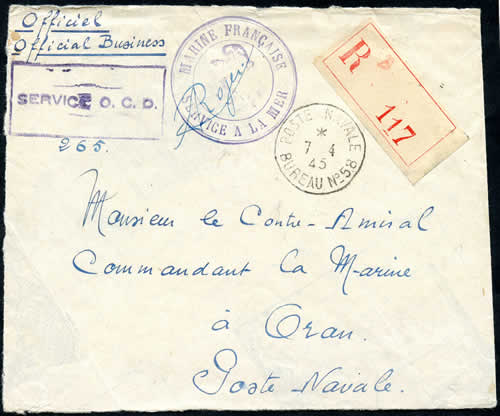 Officiel
Official Business
SERVICE O.C.D.
265.
MARINE FRANÇAISE
SERVICE A LA MER
Roger
POSTE NAVALE
*
7 4
45
BUREAU Nº58
R
117
Monsieur le Contre-Amiral
Commandant la Marine
à Oran.
Poste Navale.